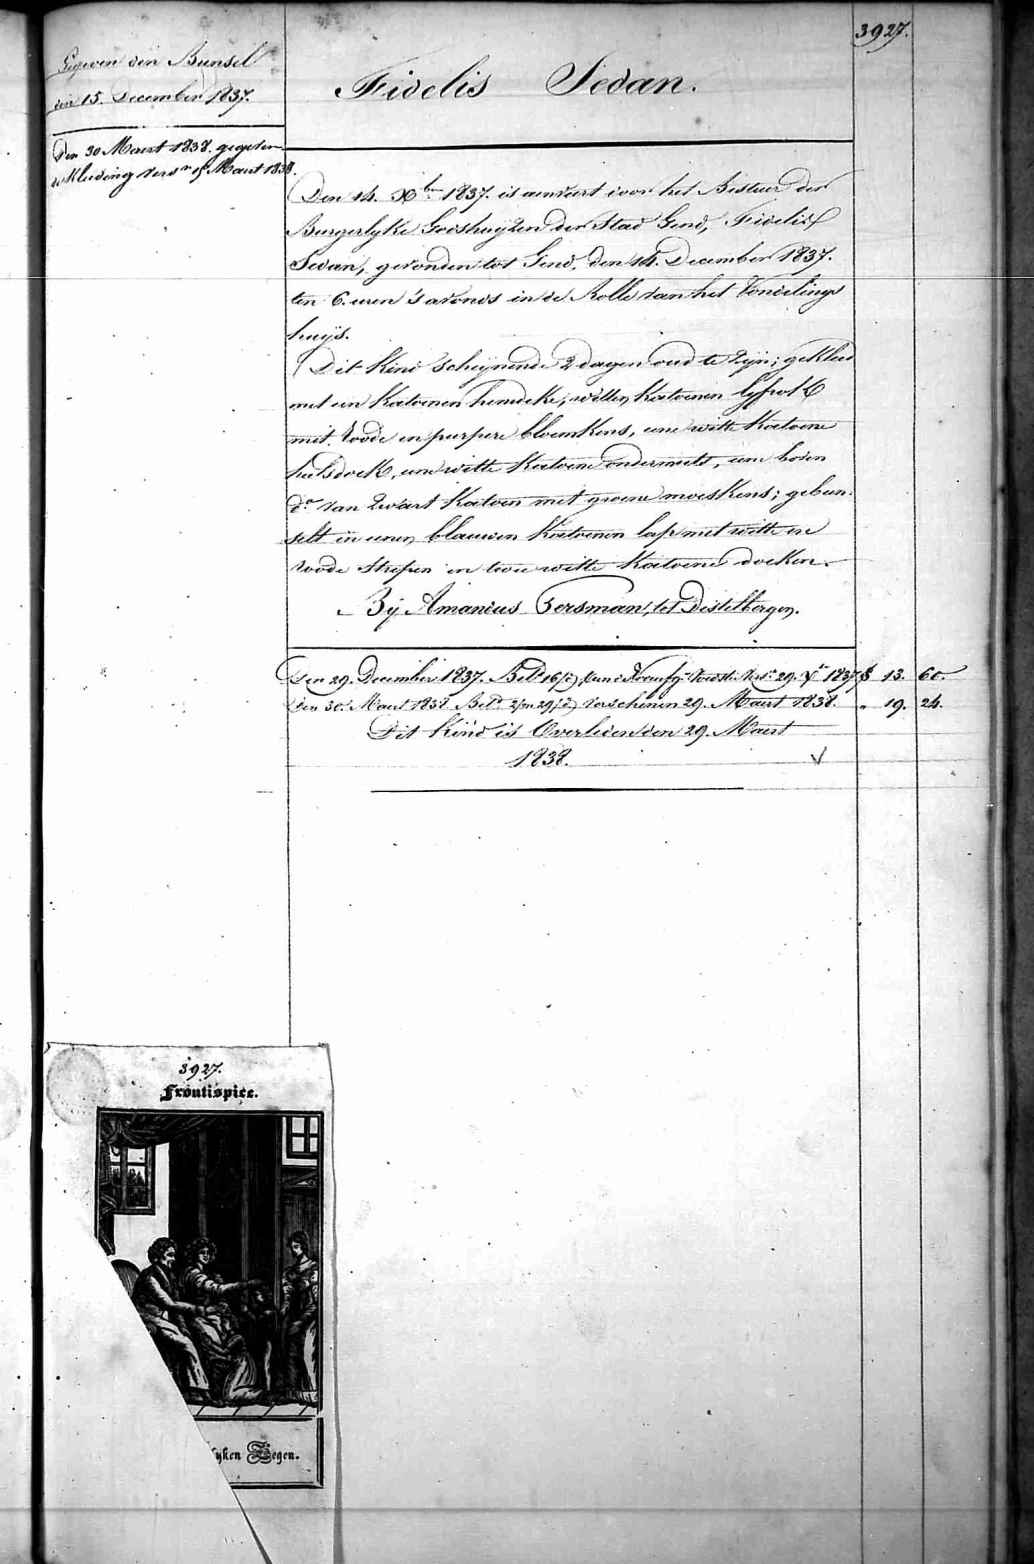 3927.
Gegeven den Bunsel
den 15. December 1837.
Den 30 Maart 1838. gegeven
de Kleeding vers.n 15 Maart 1838.
Fidelis Sedan.
Den 14. Xber 1837. is aenveert door het Bestuer der
Burgerlyke Godshuyzen der Stad Gend, Fidelis
Sedan, gevonden tot Gend, den 14. December 1837.
ten 6. uren 's avonds in de Rolle van het Vondelings
huys.
Dit Kind schynende 2 dagen oud te zyn; gekleed
met een Katoenen hemdeke, witten Katoenen lyfrok
met roode en purpere bloemkens, eene witte Katoene
halsdoek, eene witte Katoene ondermuts, eene boven
do. van zwart Katoen met groene moeskens; gebun-
selt in eenen blauwen Katoenen lap met witte en
roode strepen en twee witte Katoene doeken.
By Amandus Versman, tot Destelbergen.
Den 29. December 1837. Bet. 16 Vers. 29. Xr 1837 13. 60.
Den 30. Maart 1838 Bet. 2 m 29 verschenen 29. Maart 1838. " 19. 24.
Dit Kind is Overleden den 29. Maart
1838.
3927.
Frontispice.
yken Zegen.